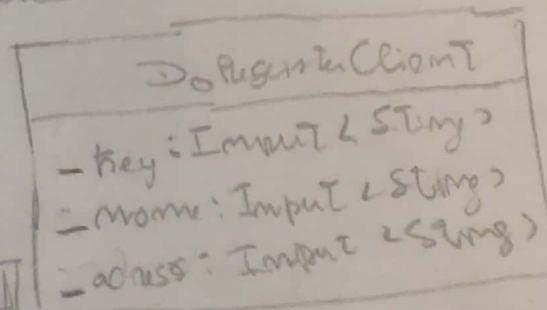 DoRegisterClient
- Key: Input <String>
- nome: Input <String>
- adress: Input <String>